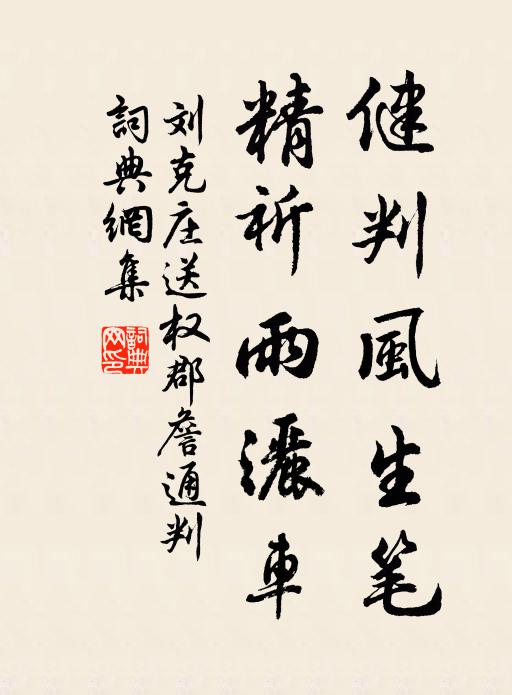 健判風生笔
精祈雨灑車
刘克庄送权郡詹通判
詞典網集
詞典网印